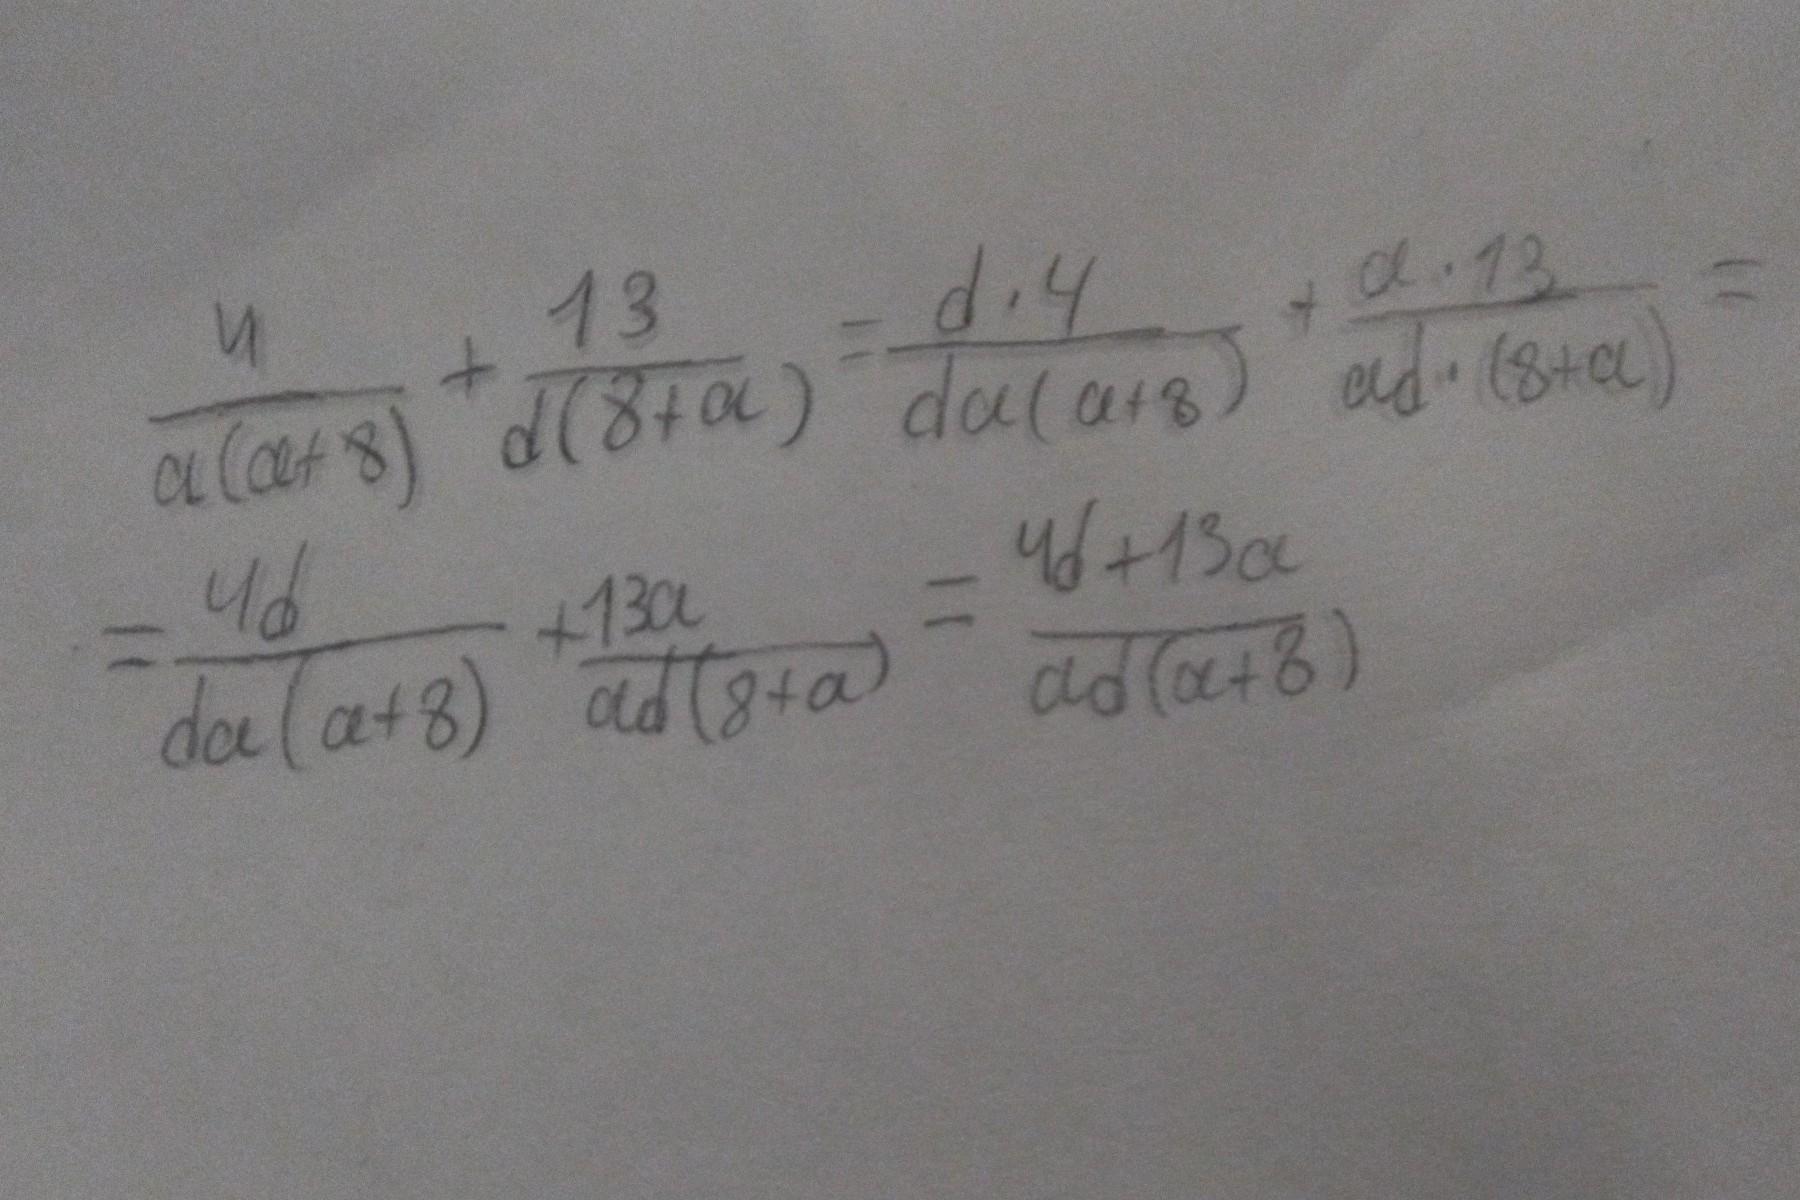 4/a(a+8) + 13/d(8+a) = d·4/da(a+8) + a·13/ad·(8+a) =
= 4d/da(a+8) + 13a/ad(8+a) = 4d+13a/ad(a+8)